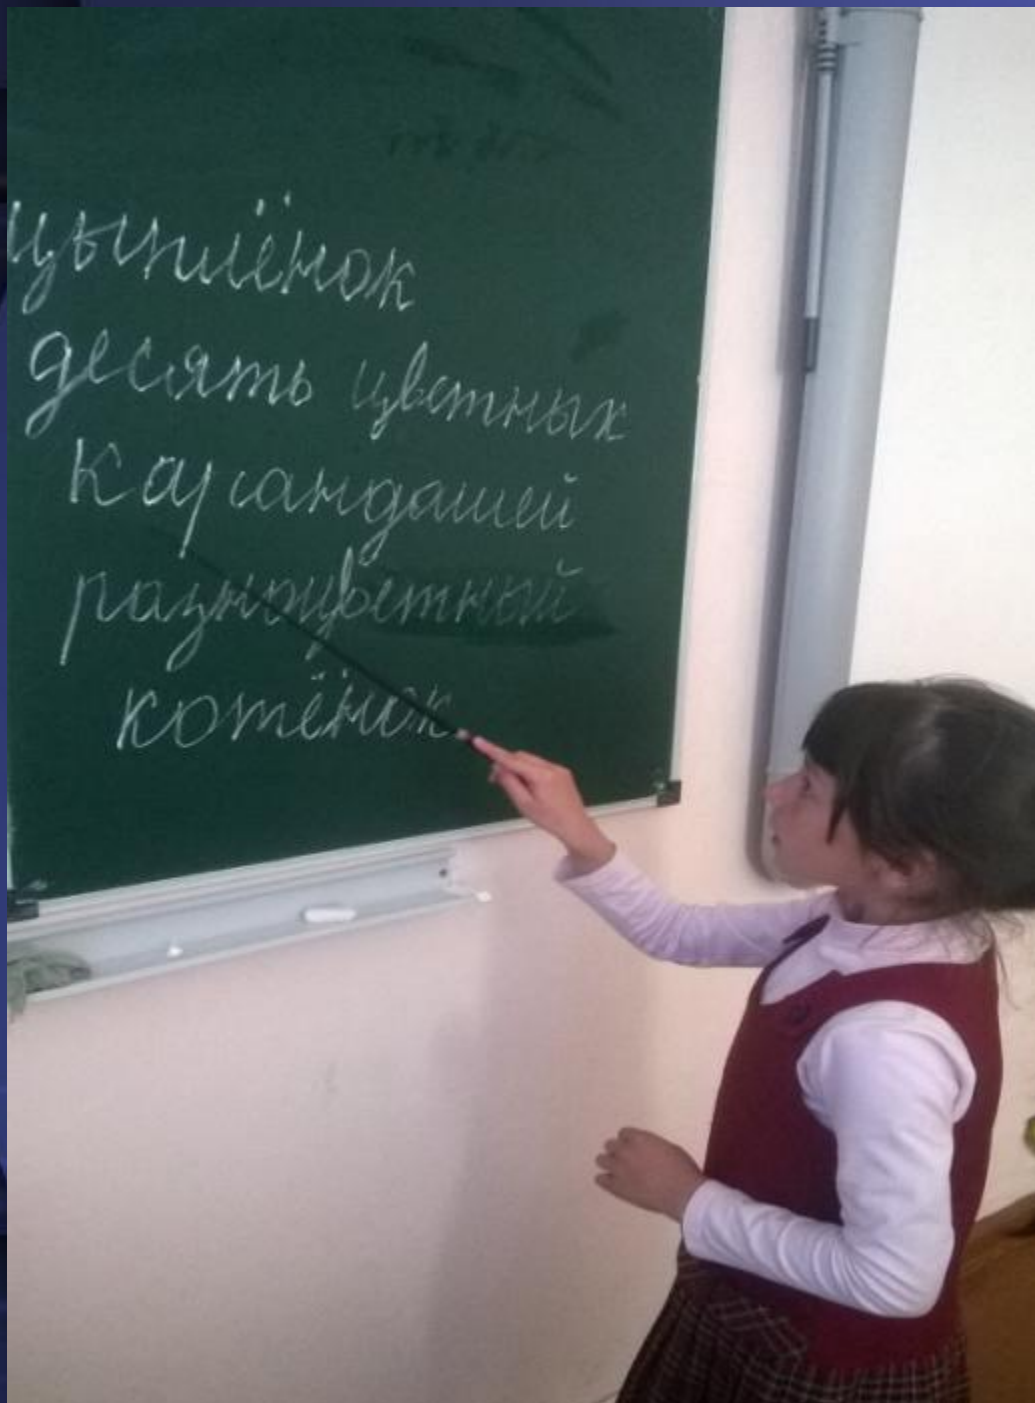 цыплёнок
десять цветных
карандашей
разноцветный
котёнок